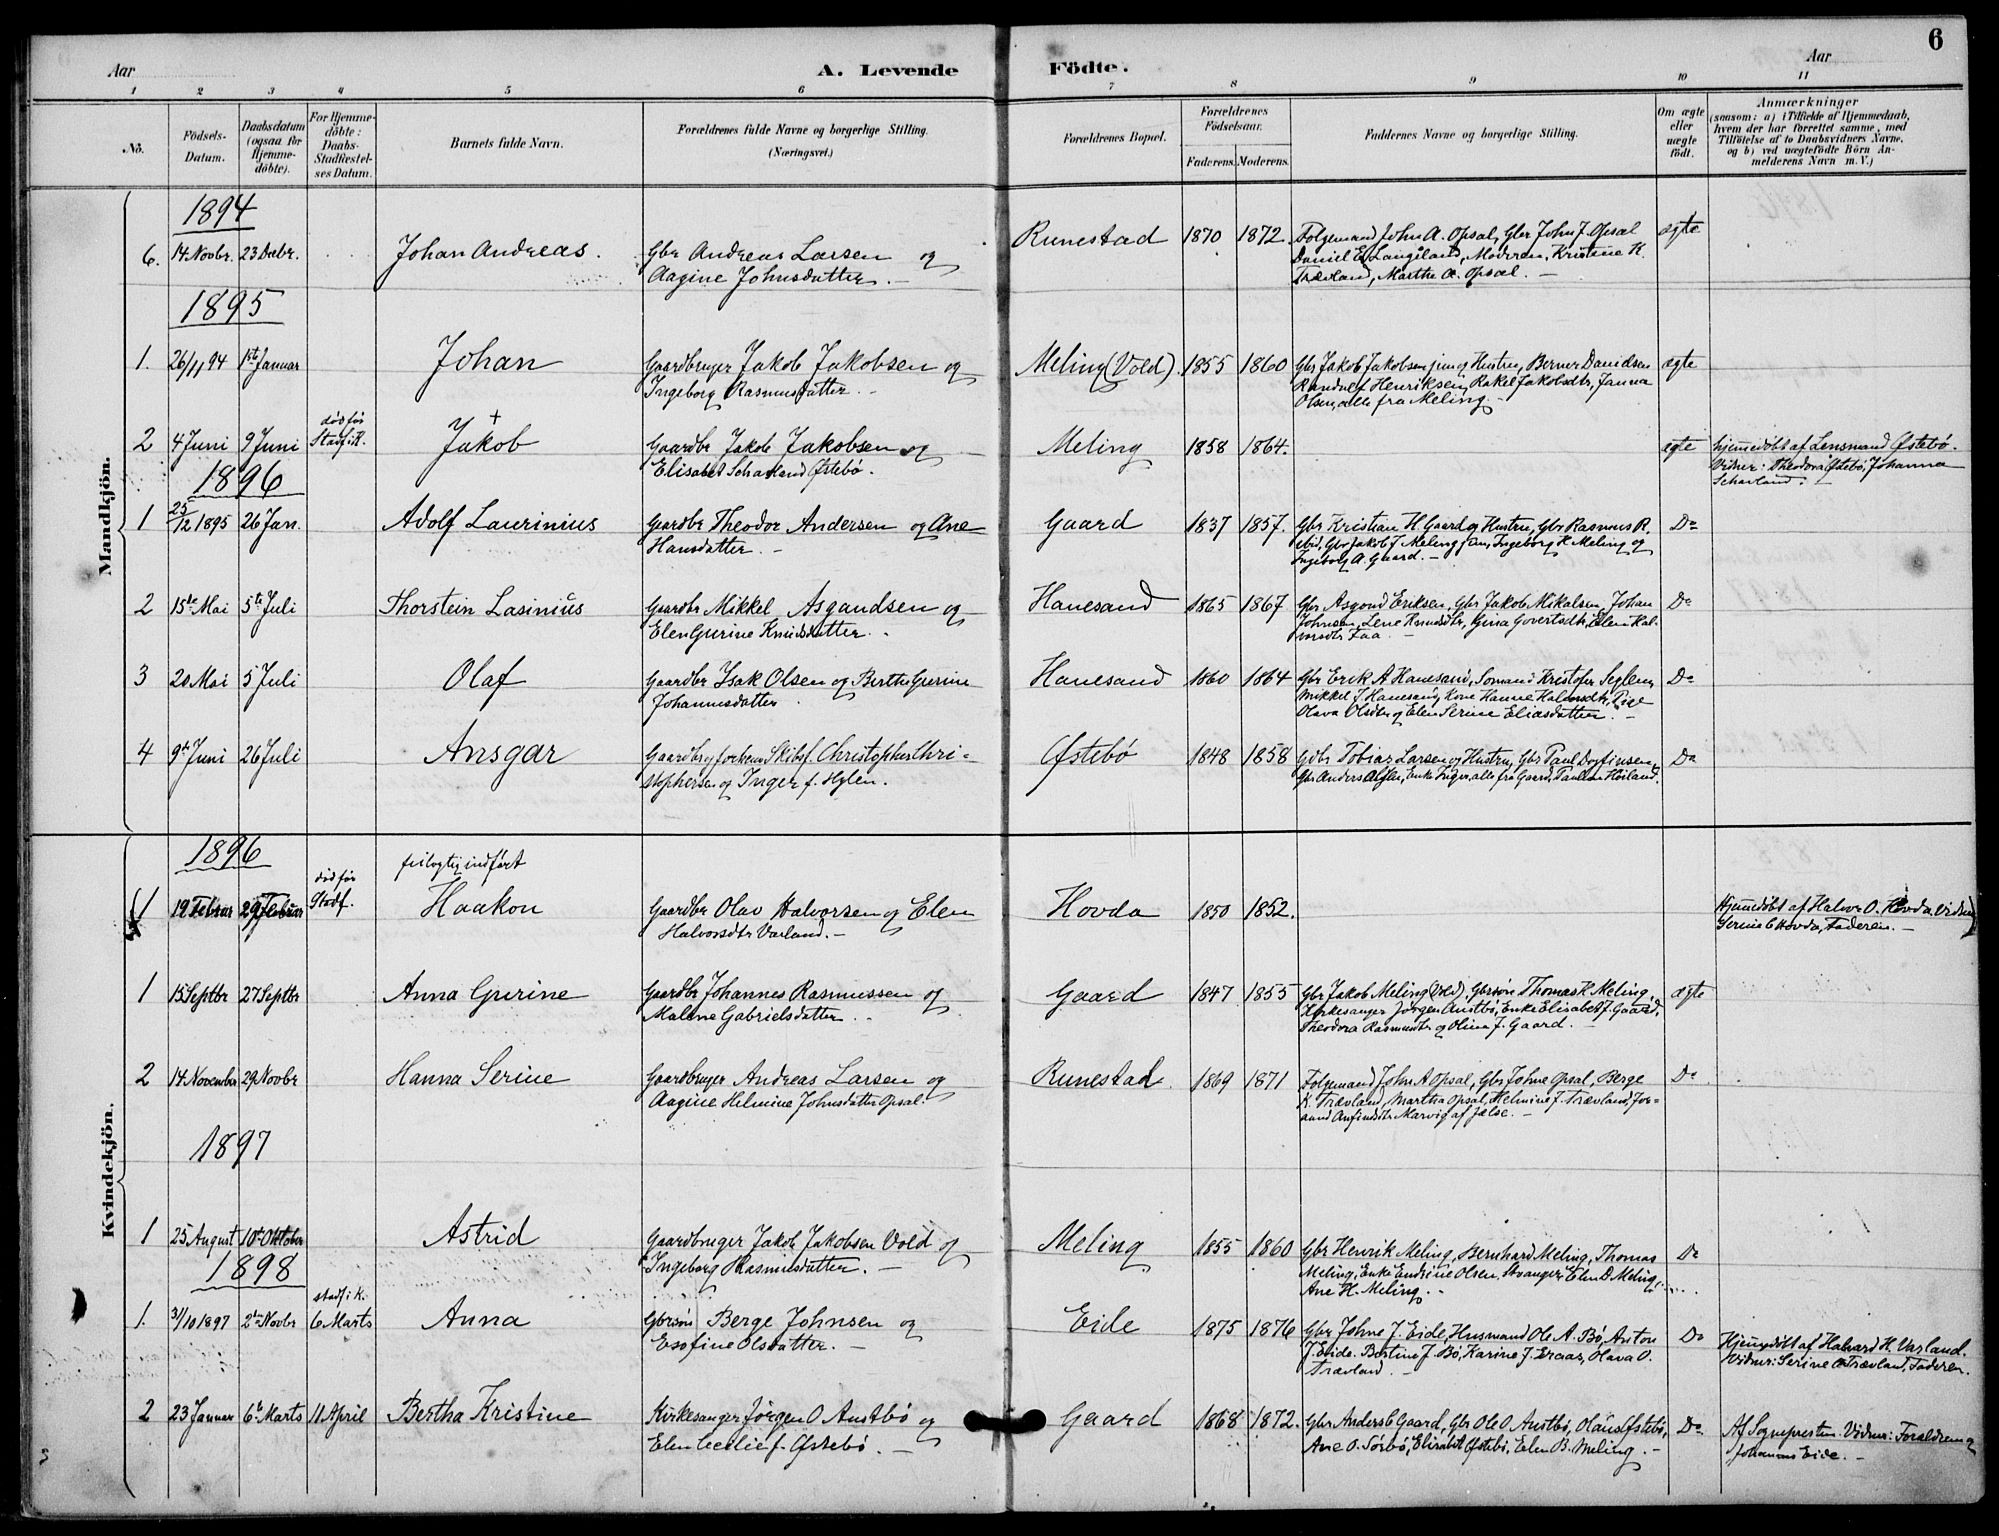 6
Aar
A. Levende
Födte.
Aar
1 2 3 4 5 6 7 8 9 10 11
No.
Födsels-
Datum.
Daabsdatum
(ogsaa for
Hjemme-
döbte).
For Hjemme-
döbte:
Daabs-
Stadfæstel-
ses Datum.
Barnets fulde Navn.
Forældrenes fulde Navne og borgerlige Stilling.
(Næringsvei.)
Forældrenes Bopæl.
Forældrenes
Födselsaar.
Faderens. Moderens.
Faddernes Navne og borgerlige Stilling.
Om ægte
eller
uægte
födt.
Anmærkninger
(saasom: a) i Tilfælde af Hjemmedaab,
hvem der har forrettet samme, med
Tilföielse af to Daabsvidners Navne,
og b) ved uægtefödte Börn An-
melderens Navn m. V.)
Mandkjön.
1894
6. 14 Novbr. 23 Decbr. Johan Andreas. Gbr Andreas Larsen og
Aagine Johnsdatter.
Runestad 1870 1872 Folgemand John A. Opsal, Gbr John J. Opsal
Daniel E. Langeland, Moderen, Kristine K.
Trævland, Marthe A. Opsal.
ægte
1895
1. 26/11 94 1ste Januar Johan Gaardbruger Jakob Jakobsen og
Ingeborg Rasmusdatter.
Meling (Vold). 1855 1860 Gbr Jakob Jakobsen jun og Hustru, Berner Danielsen
Randulf Henriksen, Rakel Jakobsdtr, Janna
Olsen, alle fra Meling.
ægte
2 4 Juni 9 Juni død før
Stadf i K.
+
Jakob Gaardbr Jakob Jakobsen og
Elisabet Østebö.
Meling 1858 1864. ægte hjemmedöbt af Lensmand Østebö.
Vidner: Theodora Østebö, Johanna
1896
1 25/12 1895 26 Jan. Adolf Laurinius Gaardbr Theodor Andersen og Ane
Hansdatter.
Gaard 1837 1857. Gbr Kristian H. Gaard og Hustru, Gbr Rasmus R.
ibid, Gbr Jakob J Meling jun, Ingeborg K Meling og
Ingeborg A. Gaard.
Do
2 15de Mai 5te Juli Thorstein Lasinius Gaardbr Mikkel Asgaudsen og
Elen Gurine Knudsdatter.
Hanesand 1865 1867 Gbr Asgaud Eriksen, Gbr Jakob Mikalsen, Johan
Johnsen, Lene Knudsdtr, Gina Govertsdtr, Elen Hal-
vorsdtr Faa.
Do
3 20 Mai 5 Juli Olaf Gaardbr Isak Olsen og Berthe Gurine
Johannesdatter
Hanesand 1860 1864 Gbr Erik A Hanesand, Sömand Kristofer Seglem,
Mikkel J Hanesand, Kone Hanne Halvorsdtr, Pige
Olava Olsdtr og Elen Serine Eliasdatter.
Do
4 9de Juni 26 Juli Ansgar Gaardbr og forhenv. Skibsf. Christopher Chri-
stophersen og Inger f. Hylen.
Østebö 1848 1858 Gbr Tobias Larsen og Hustru, Gbr Paul Dagfinsen,
Gbr Anders Olsen, Enke Inger, alle fra Gaard,
Do
Kvindekjön.
1896
1 19 Februar 29 Februar død før
Stadf.
feilagtig indført
Haakon Gaardbr Olav Halvorsen og Elen
Halvorsdtr Varland.
Hovda 1850 1852. Hjemmedöbt af Halvor O. Hovda. Vidner
Serine Hovda, Faderen.
1 15 Septbr 27 Septbr Anna Gurine Gaardbr Johannes Rasmussen og
Malene Gabrielsdatter.
Gaard 1847 1855 Gbr Jakob Meling (Vold), Gbrsön Thomas K Meling,
Kirkesanger Jörgen Austbö, Enke Elisabet J. Gaard,
Theodora Rasmusdtr og Oline J. Gaard.
ægte
2 14 November 29 Novbr Hanna Serine Gaardbruger Andreas Larsen og
Aagine Helmine Johnsdatter Opsal.
Runestad 1869 1871 Folgemand John A Opsal, Gbr Johne Opsal, Berge
K. Trævland, Martha Opsal, Helmine J. Trævland, Jor-
aand Anfindsdtr Marvig af Jælse.
Do
1897
1 25 August 10de Oktober Astrid Gaardbruger Jakob Jakobsen Vold og
Ingeborg Rasmusdatter.
Meling 1855 1860 Gbr Henrik Meling, Bernhard Meling, Thomas
Meling, Enke Endrine Olsen, Stavanger, Elen D. Meling,
Ane H. Meling.
Do
1898
1. 31/10 1897 2den Novbr stadf i K.
6 Marts Anna Gbrsön Berge Johnsen og
Esofine Olsdatter.
Eide 1875 1876 Gbr Johne J. Eide, Husmand Ole A. Bö, Anton
J. Eide. Bertine J. Bö, Karine J. Eraas, Olava O.
Trævland.
Do Hjemmedöbt af Halvard H. Varland.
Vidner: Serine Trævland, Faderen.
2 23 Januar 6te Marts 11 April Bertha Kristine Kirkesanger Jörgen O Austbö og
Elen Cecilie f. Østebö.
Gaard 1868 1872. Gbr Anders Gaard, Gbr Ole O. Austbö, Olaus Østebö,
Ane O. Sörbö, Elisabet Østebö, Elen B. Meling.
Do Af Sognepresten. Vidner: Forældrene og
Johannes Eide.